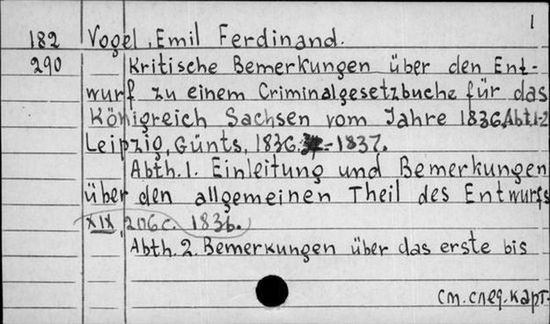 1
182 Vogel, Emil Ferdinand.
290 Kritische Bemerkungen über den Ent-
wurf zu einem Criminalgesetzbuche für das
Königreich Sachsen vom Jahre 1836 Abt.1-2
Leipzig, Günts, 1836-1837.
Abth. 1. Einleitung und Bemerkungen
über den allgemeinen Theil des Entwurfs
XIX, 206 c. 1836.
Abth. 2. Bemerkungen über das erste bis
см. след. карт.